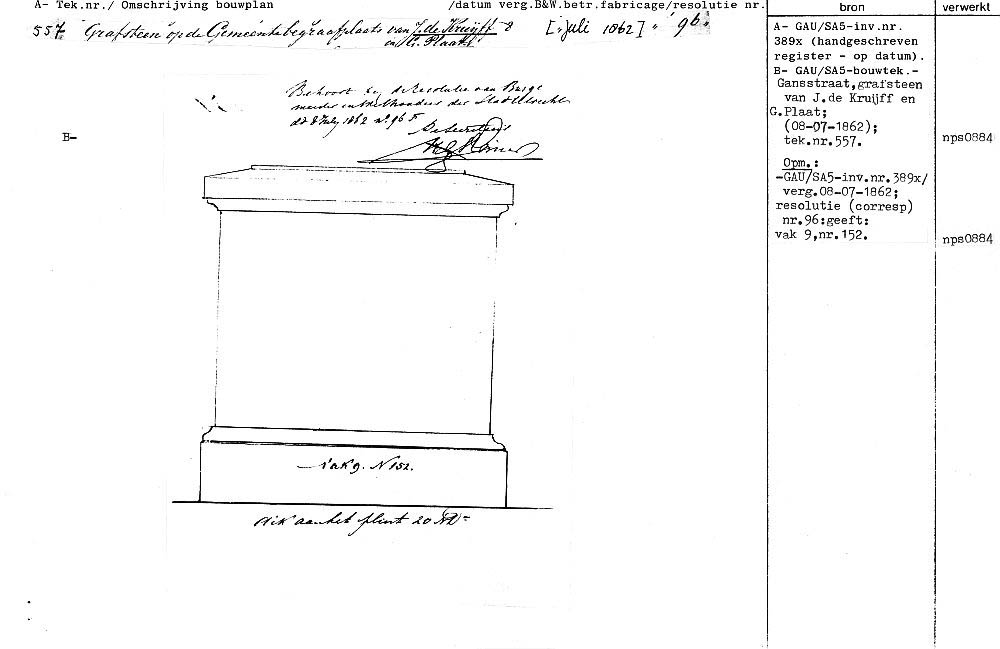 A- Tek.nr./ Omschrijving bouwplan /datum verg.B&W.betr.fabricage/resolutie nr.
bron
verwerkt
557 Grafsteen op de Gemeentebegraafplaats van J. de Kruijff [8 juli 1862] " 96.
en G. Plaat
Behoort bij de Resolutie van Burge
meester en Wethouders der Stad Utrecht
dd 8 July 1862 no. 96
De Secretaris
B-
vak 9. N 152.
dik aan het plint 20
A- GAU/SA5-inv.nr.
389x (handgeschreven
register - op datum).
B- GAU/SA5-bouwtek.-
Gansstraat,grafsteen
van J.de Kruijff en
G.Plaat;
(08-07-1862);
tek.nr.557.
nps0884
Opm.:
-GAU/SA5-inv.nr.389x/
verg.08-07-1862;
resolutie (corresp)
nr.96:geeft:
vak 9,nr.152.
nps0884